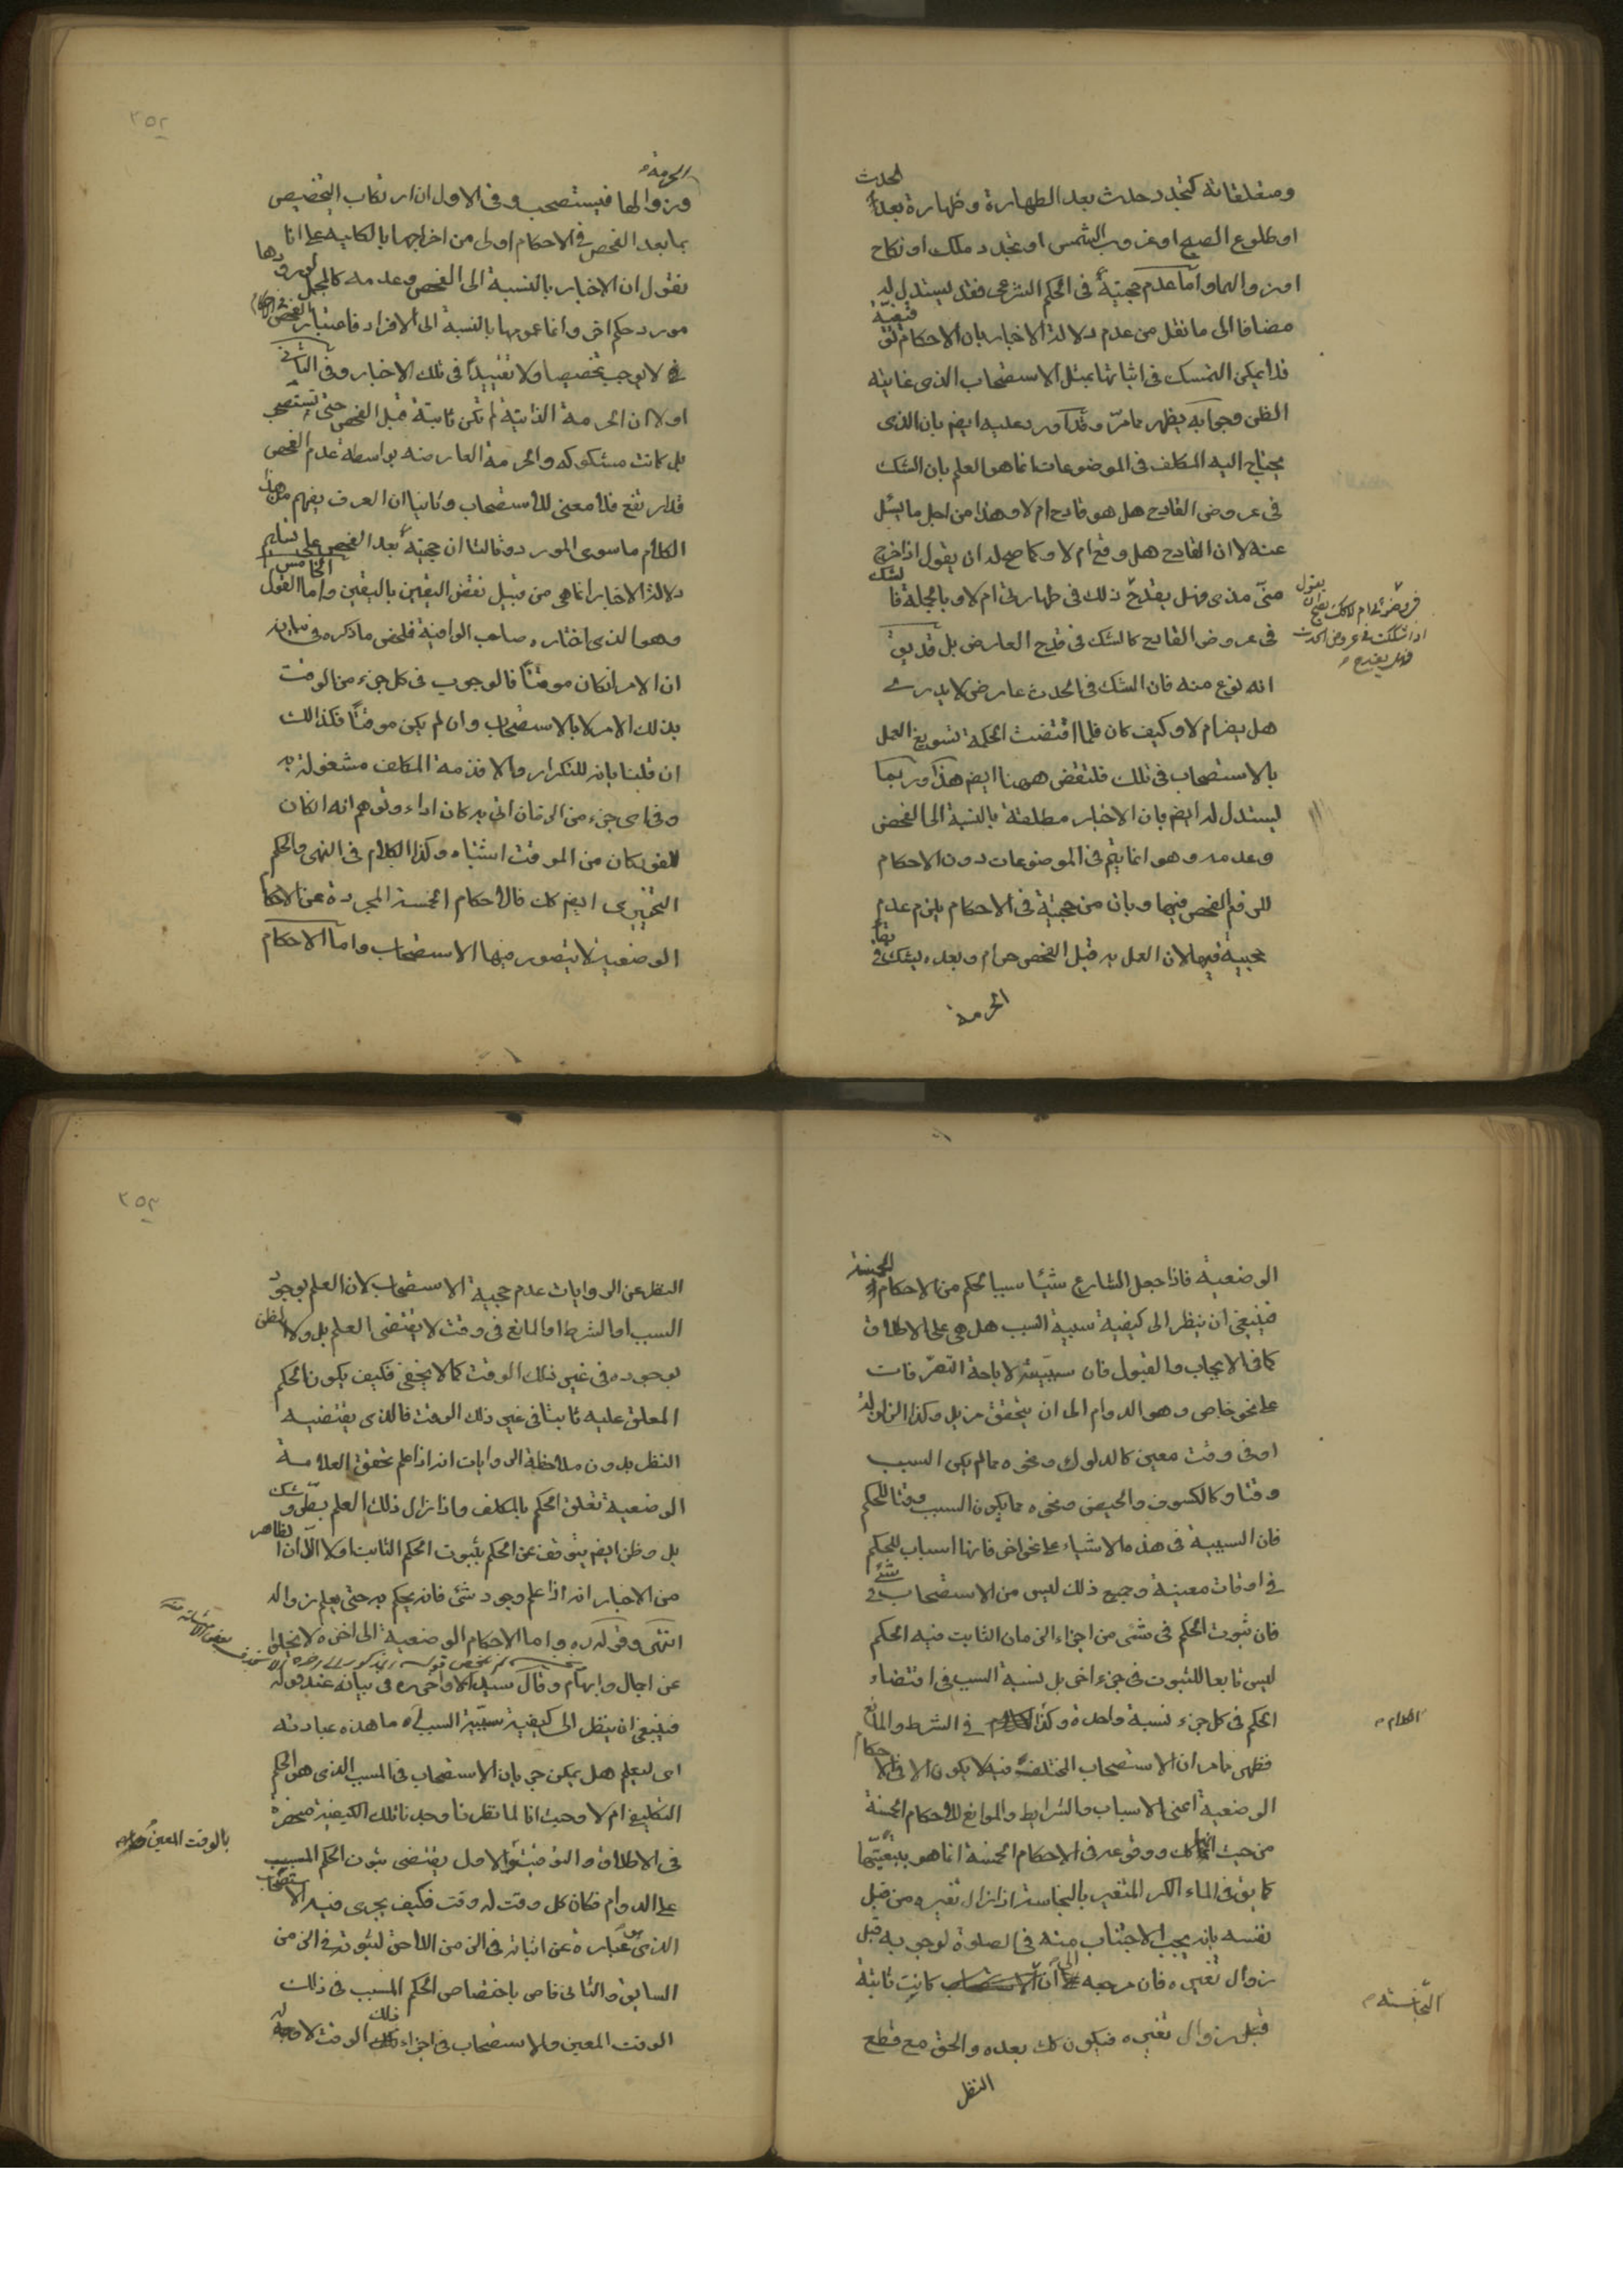 ومتعلقاته كتجدد حدث بعد الطهارة وطهارة بعد الحدث
او طلوع الصبح او غروب الشمس او تجدد ملك او نكاح
او زوالهما واما عدم حجيته في الحكم الشرعي فقد يستدل له
مضافا الى ما نقل من عدم دلالة الاخبار بان الاحكام توقيفية
فلا يمكن التمسك في اثباتها بمثل الاستصحاب الذي غايته
الظن وجوابه يظهر مما مرّ وقد اورد عليه ايضا بان الذي
يحتاج اليه المكلف في الموضوعات انما هو العلم بان الشك
في عروض القادح هل هو قادح ام لا وهذا من اجل ما يسئل
عنه لا ان القادح هل وقع ام لا وكما صح له ان يقول اذا خرج
منّي مذي فهل يقدح ذلك في طهارتي ام لا وبالجملة فالشك
في عروض القادح كالشك في قدح العارض بل قد يق
انه نوع منه فان الشك في الحدث عارض لا يدرى
هل يضر ام لا وكيف كان فلما اقتضت الحكمة تسويغ العمل
بالاستصحاب في تلك فلتقض ههنا ايضا هذا وربما
يستدل له ايضا بان الاخبار مطلقة بالنسبة الى الفحص
وعدمه وهو انما يتم في الموضوعات دون الاحكام
للزوم الفحص فيها وبان من حجيته في الاحكام يلزم عدم
حجيته فيها لان العمل به قبل الفحص حرام وبعده يشك في بقاء
الحرمة
اذا شككت في عروض الحدث
فهل يقدح
الحرمة
وزوالها فيستصحب وفي الاول ان ارتكاب التخصيص
بما بعد الفحص في الاحكام اولى من اخراجها بالكلية على انا
نقول ان الاخبار بالنسبة الى الفحص وعدمه كالمجمل لورودها
مورد حكم اخر وانما عمومها بالنسبة الى الافراد فاعتبار الفحص
لا يوجب تخصيصا ولا تقييدا في تلك الاخبار وفي الثاني
اولا ان الحرمة الذاتية لم تكن ثابتة قبل الفحص حتى يستصحب
بل كانت مشكوكه والحرمة العارضه بواسطة عدم الفحص
قد ارتفع فلا معنى للاستصحاب وثانيا ان العرف يفهم من هذا
الكلام ما سوى المورد وثالثا ان حجيته بعد الفحص على تسليم
دلالة الاخبار انما هي من قبيل نقض اليقين باليقين واما القول الخامس
وهو الذي اختاره صاحب الوافية فلخص ما ذكره في بيانه
ان الامر ان كان موقتا فالوجوب في كل جزء من الوقت
بذلك الامر لا بالاستصحاب وان لم يكن موقتا فكذلك
ان قلنا بانه للتكرار والا فذمة المكلف مشغولة به
وفي اي جزء من الزمان اتي به كان اداء وتوهم انه ان كان
للفور كان من الموقت اشتباه وكذا الكلام في النهي والحكم
التخييري ايضا كك فالاحكام الخمسة المجردة عن الاحكام
الوضعية لا يتصور فيها الاستصحاب واما الاحكام
٢٥٢
الوضعية فاذا جعل الشارع شيئا سببا لحكم من الاحكام الخمسة
فينبغي ان ينظر الى كيفية سببية السبب هل هي على الاطلاق
كما في الايجاب والقبول فان سببيته لاباحة التصرفات
على نحو خاص وهو الدوام الى ان يتحقق مزيل وكذا الزلزلة
او في وقت معين كالدلوك ونحوه مما لم يكن السبب
وقتا وكالكسوف والحيض ونحوه مما يكون السبب وقتا للحكم
فان السببية في هذه الاشياء على نحو اخر فانها اسباب للحكم
في اوقات معينة وجميع ذلك ليس من الاستصحاب في شئ
فان ثبوت الحكم في شئ من اجزاء الزمان الثابت فيه الحكم
ليس تابعا للثبوت في جزء اخر بل نسبة السبب في اقتضاء
الحكم في كل جزء نسبة واحدة وكذا الكلام في الشرط والمانع
فظهر مما مر ان الاستصحاب المختلف فيه لا يكون الا في الاحكام
الوضعية اعني الاسباب والشرايط والموانع للاحكام الخمسة
من حيث انها كك ووقوعه في الاحكام الخمسة انما هو بتبعيتها
كما يق في الماء الكر المتغير بالنجاسة اذا زال تغيره من قبل
نفسه بانه يجب الاجتناب منه في الصلوة لوجوبه قبل
زوال تغيره فان مرجعه الى ان النجاسة كانت ثابتة
قبل زوال تغيره فيكون كك بعده والحق مع قطع
النظر
الكلام
النجاسة
النظر عن الروايات عدم حجية الاستصحاب لان العلم بوجود
السبب او الشرط او المانع في وقت لا يقتضي العلم بل ولا الظن
بوجوده في غير ذلك الوقت كما لا يخفى فكيف يكون الحكم
المعلق عليه ثابتا في غير ذلك الوقت فالذي يقتضيه
النظر بدون ملاحظة الروايات انه اذا علم تحقق العلامة
الوضعية تعلق الحكم بالمكلف واذا زال ذلك العلم بطرو شك
بل وظن ايضا يتوقف عن الحكم بثبوت الحكم الثابت اولا الا ان الظاهر
من الاخبار انه اذا علم وجود شئ فانه يحكم به حتى يعلم زواله
انتهى وقوله ره واما الاحكام الوضعية الى اخره لا يخلو
عن اجمال وابهام وقال سيد في بيانه عند قوله
فينبغي ان ينظر الى كيفية سببية السبب اه ما هذه عبارته
اي ليعلم هل يمكن جريان الاستصحاب في المسبب الذي هو الحكم
التكليفي ام لا وحيث انا لما نظرنا وجدنا تلك الكيفية منحصرة
في الاطلاق والتوقيت والاول يقتضي ثبوت الحكم المسبب
على الدوام فكان كل وقت له وقت فكيف يجري فيه الاستصحاب
الذي هو عبارة عن اثباته في الزمن اللاحق لثبوته في الزمن
السابق والثاني قاض باختصاص الحكم المسبب في ذلك
الوقت المعين والاستصحاب في اجزاء ذلك الوقت لا وجه له
بالوقت المعين
٢٥٣